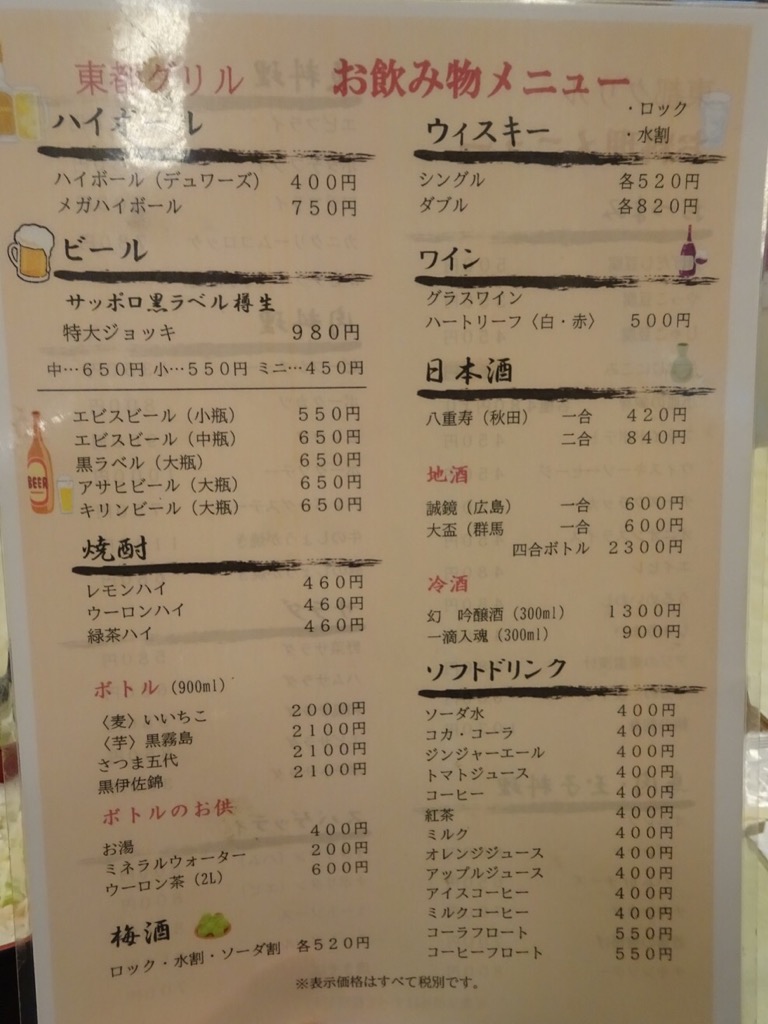 東都グリル お飲み物メニュー
ハイボール
ハイボール（デュワーズ） 400円
メガハイボール 750円
ビール
サッポロ黒ラベル樽生
特大ジョッキ 980円
中…650円 小…550円 ミニ…450円
エビスビール（小瓶） 550円
エビスビール（中瓶） 650円
黒ラベル（大瓶） 650円
アサヒビール（大瓶） 650円
キリンビール（大瓶） 650円
焼酎
レモンハイ 460円
ウーロンハイ 460円
緑茶ハイ 460円
ボトル（900ml）
〈麦〉いいちこ 2000円
〈芋〉黒霧島 2100円
さつま五代 2100円
黒伊佐錦 2100円
ボトルのお供
お湯 400円
ミネラルウォーター 200円
ウーロン茶（2L） 600円
梅酒
ロック・水割・ソーダ割 各520円
ウィスキー
・ロック
・水割
シングル 各520円
ダブル 各820円
ワイン
グラスワイン
ハートリーフ〈白・赤〉 500円
日本酒
八重寿（秋田） 一合 420円
二合 840円
地酒
誠鏡（広島） 一合 600円
大盃（群馬 一合 600円
四合ボトル 2300円
冷酒
幻 吟醸酒（300ml） 1300円
一滴入魂（300ml） 900円
ソフトドリンク
ソーダ水 400円
コカ・コーラ 400円
ジンジャーエール 400円
トマトジュース 400円
コーヒー 400円
紅茶 400円
ミルク 400円
オレンジジュース 400円
アップルジュース 400円
アイスコーヒー 400円
ミルクコーヒー 400円
コーラフロート 550円
コーヒーフロート 550円
※表示価格はすべて税別です。
BEER